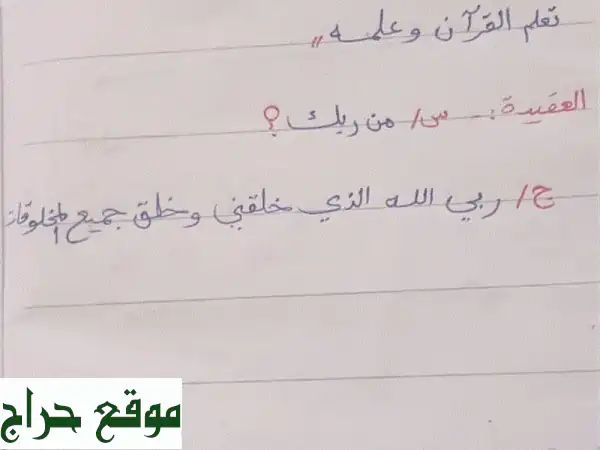 تعلم القرآن وعلمه "
العقيدة :- س/ من ربك ؟
ج/ ربي الله الذي خلقني وخلق جميع المخلوقات
موقع حراج